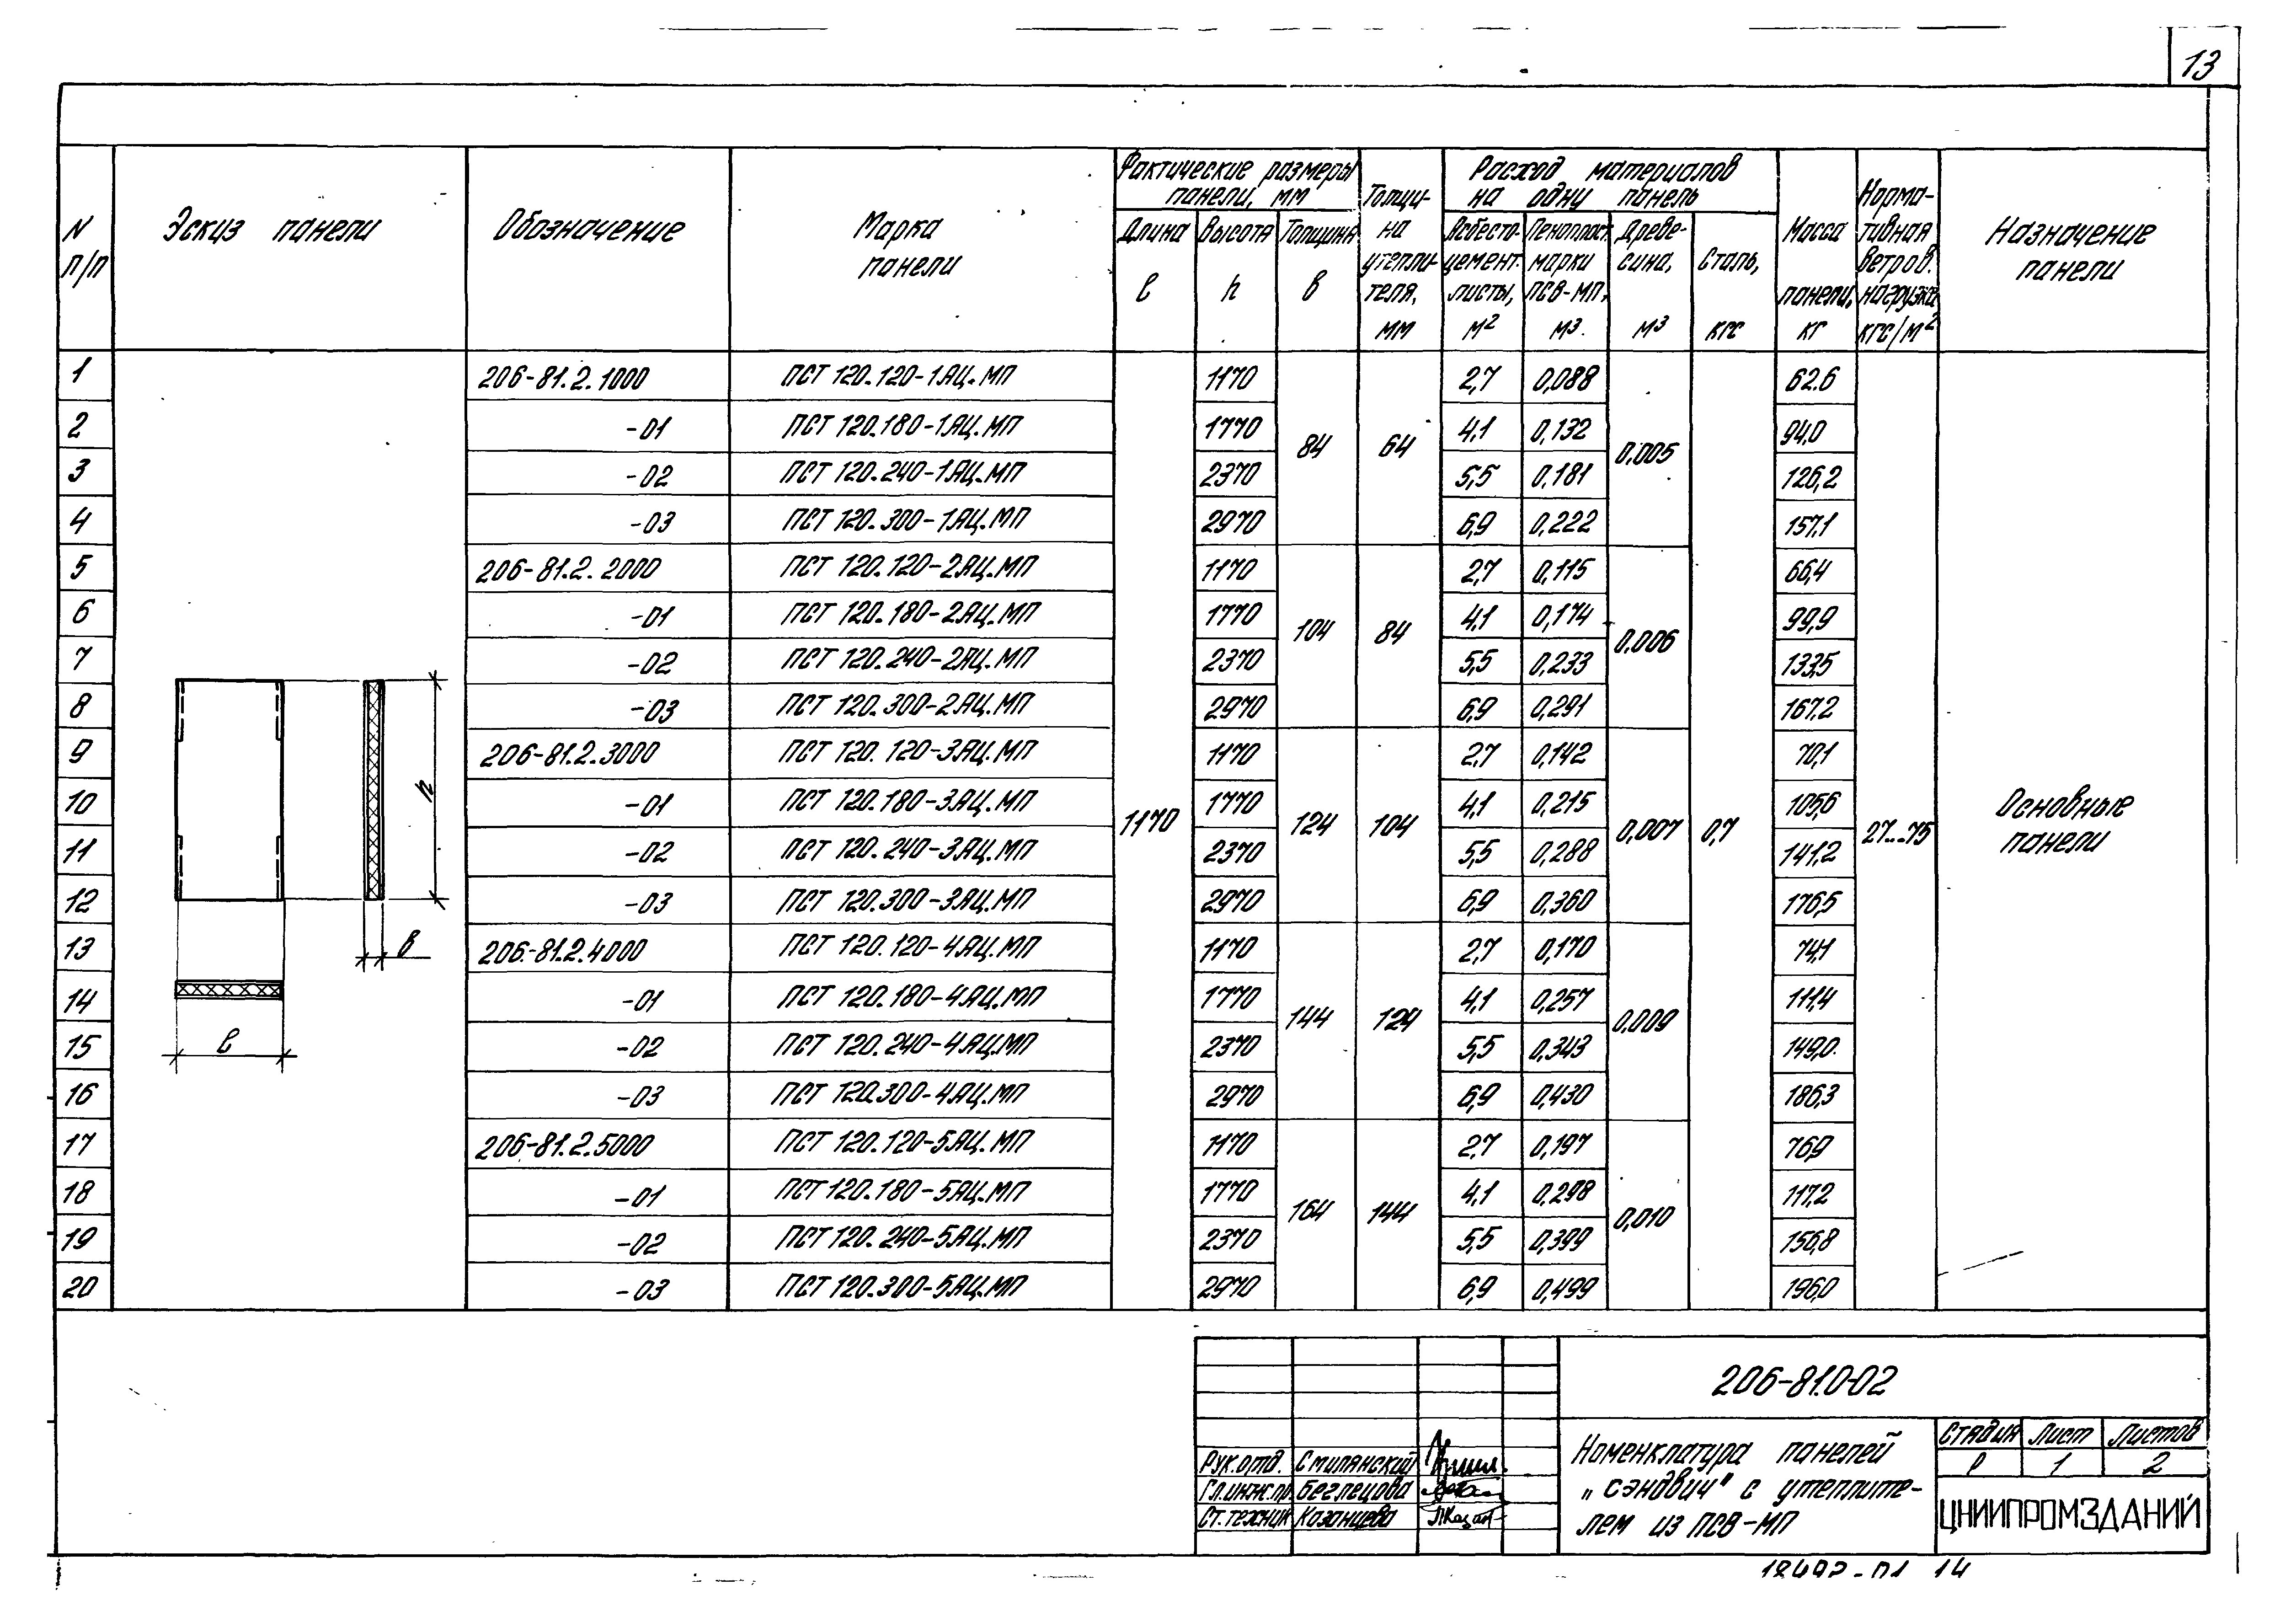 13
N п/п
Эскиз панели
Обозначение
Марка панели
Фактические размеры панели, мм
Длина l
Высота h
Толщина в
Толщи-на утепли-теля, мм
Расход материалов на одну панель
Асбесто-цемент. листы, м²
Пенопласт марки ПСВ-МП, м³
Древе-сина, м³
Сталь, кгс
Масса панели, кг
Норма-тивная ветров. нагрузка кгс/м²
Назначение панели
1 206-81.2.1000 ПСТ 120.120-1АЦ.МП 1170 2,7 0,088 62.6
2 -01 ПСТ 120.180-1АЦ.МП 1770 4,1 0,132 94,0
84 64 0,005
3 -02 ПСТ 120.240-1АЦ.МП 2370 5,5 0,181 126,2
4 -03 ПСТ 120.300-1АЦ.МП 2970 6,9 0,222 157,1
5 206-81.2.2000 ПСТ 120.120-2АЦ.МП 1170 2,7 0,115 66,4
6 -01 ПСТ 120.180-2АЦ.МП 1770 4,1 0,174 99,9
104 84 0,006
7 -02 ПСТ 120.240-2АЦ.МП 2370 5,5 0,233 133,5
8 -03 ПСТ 120.300-2АЦ.МП 2970 6,9 0,291 167,2
9 206-81.2.3000 ПСТ 120.120-3АЦ.МП 1170 2,7 0,142 70,1
10 -01 ПСТ 120.180-3АЦ.МП 1770 4,1 0,215 105,6
1170 124 104 0,007 0,7 27...75 Основные панели
11 -02 ПСТ 120.240-3АЦ.МП 2370 5,5 0,288 141,2
12 -03 ПСТ 120.300-3АЦ.МП 2970 6,9 0,360 176,5
13 206-81.2.4000 ПСТ 120.120-4АЦ.МП 1170 2,7 0,170 74,1
14 -01 ПСТ 120.180-4АЦ.МП 1770 4,1 0,257 111,4
144 124 0,009
15 -02 ПСТ 120.240-4АЦ.МП 2370 5,5 0,343 149,0
16 -03 ПСТ 120.300-4АЦ.МП 2970 6,9 0,430 186,3
17 206-81.2.5000 ПСТ 120.120-5АЦ.МП 1170 2,7 0,197 76,9
18 -01 ПСТ 120.180-5АЦ.МП 1770 4,1 0,298 117,2
164 144 0,010
19 -02 ПСТ 120.240-5АЦ.МП 2370 5,5 0,399 156,8
20 -03 ПСТ 120.300-5АЦ.МП 2970 6,9 0,499 196,0
h
в
l
206-81.0-02
Рук.отд. Смилянский
Гл.инж.пр. Беглецова
Ст.техник Казанцева
Номенклатура панелей
„сэндвич" с утеплите-
лем из ПСВ-МП
Стадия Лист Листов
Р 1 2
ЦНИИПРОМЗДАНИЙ
18492-01 14